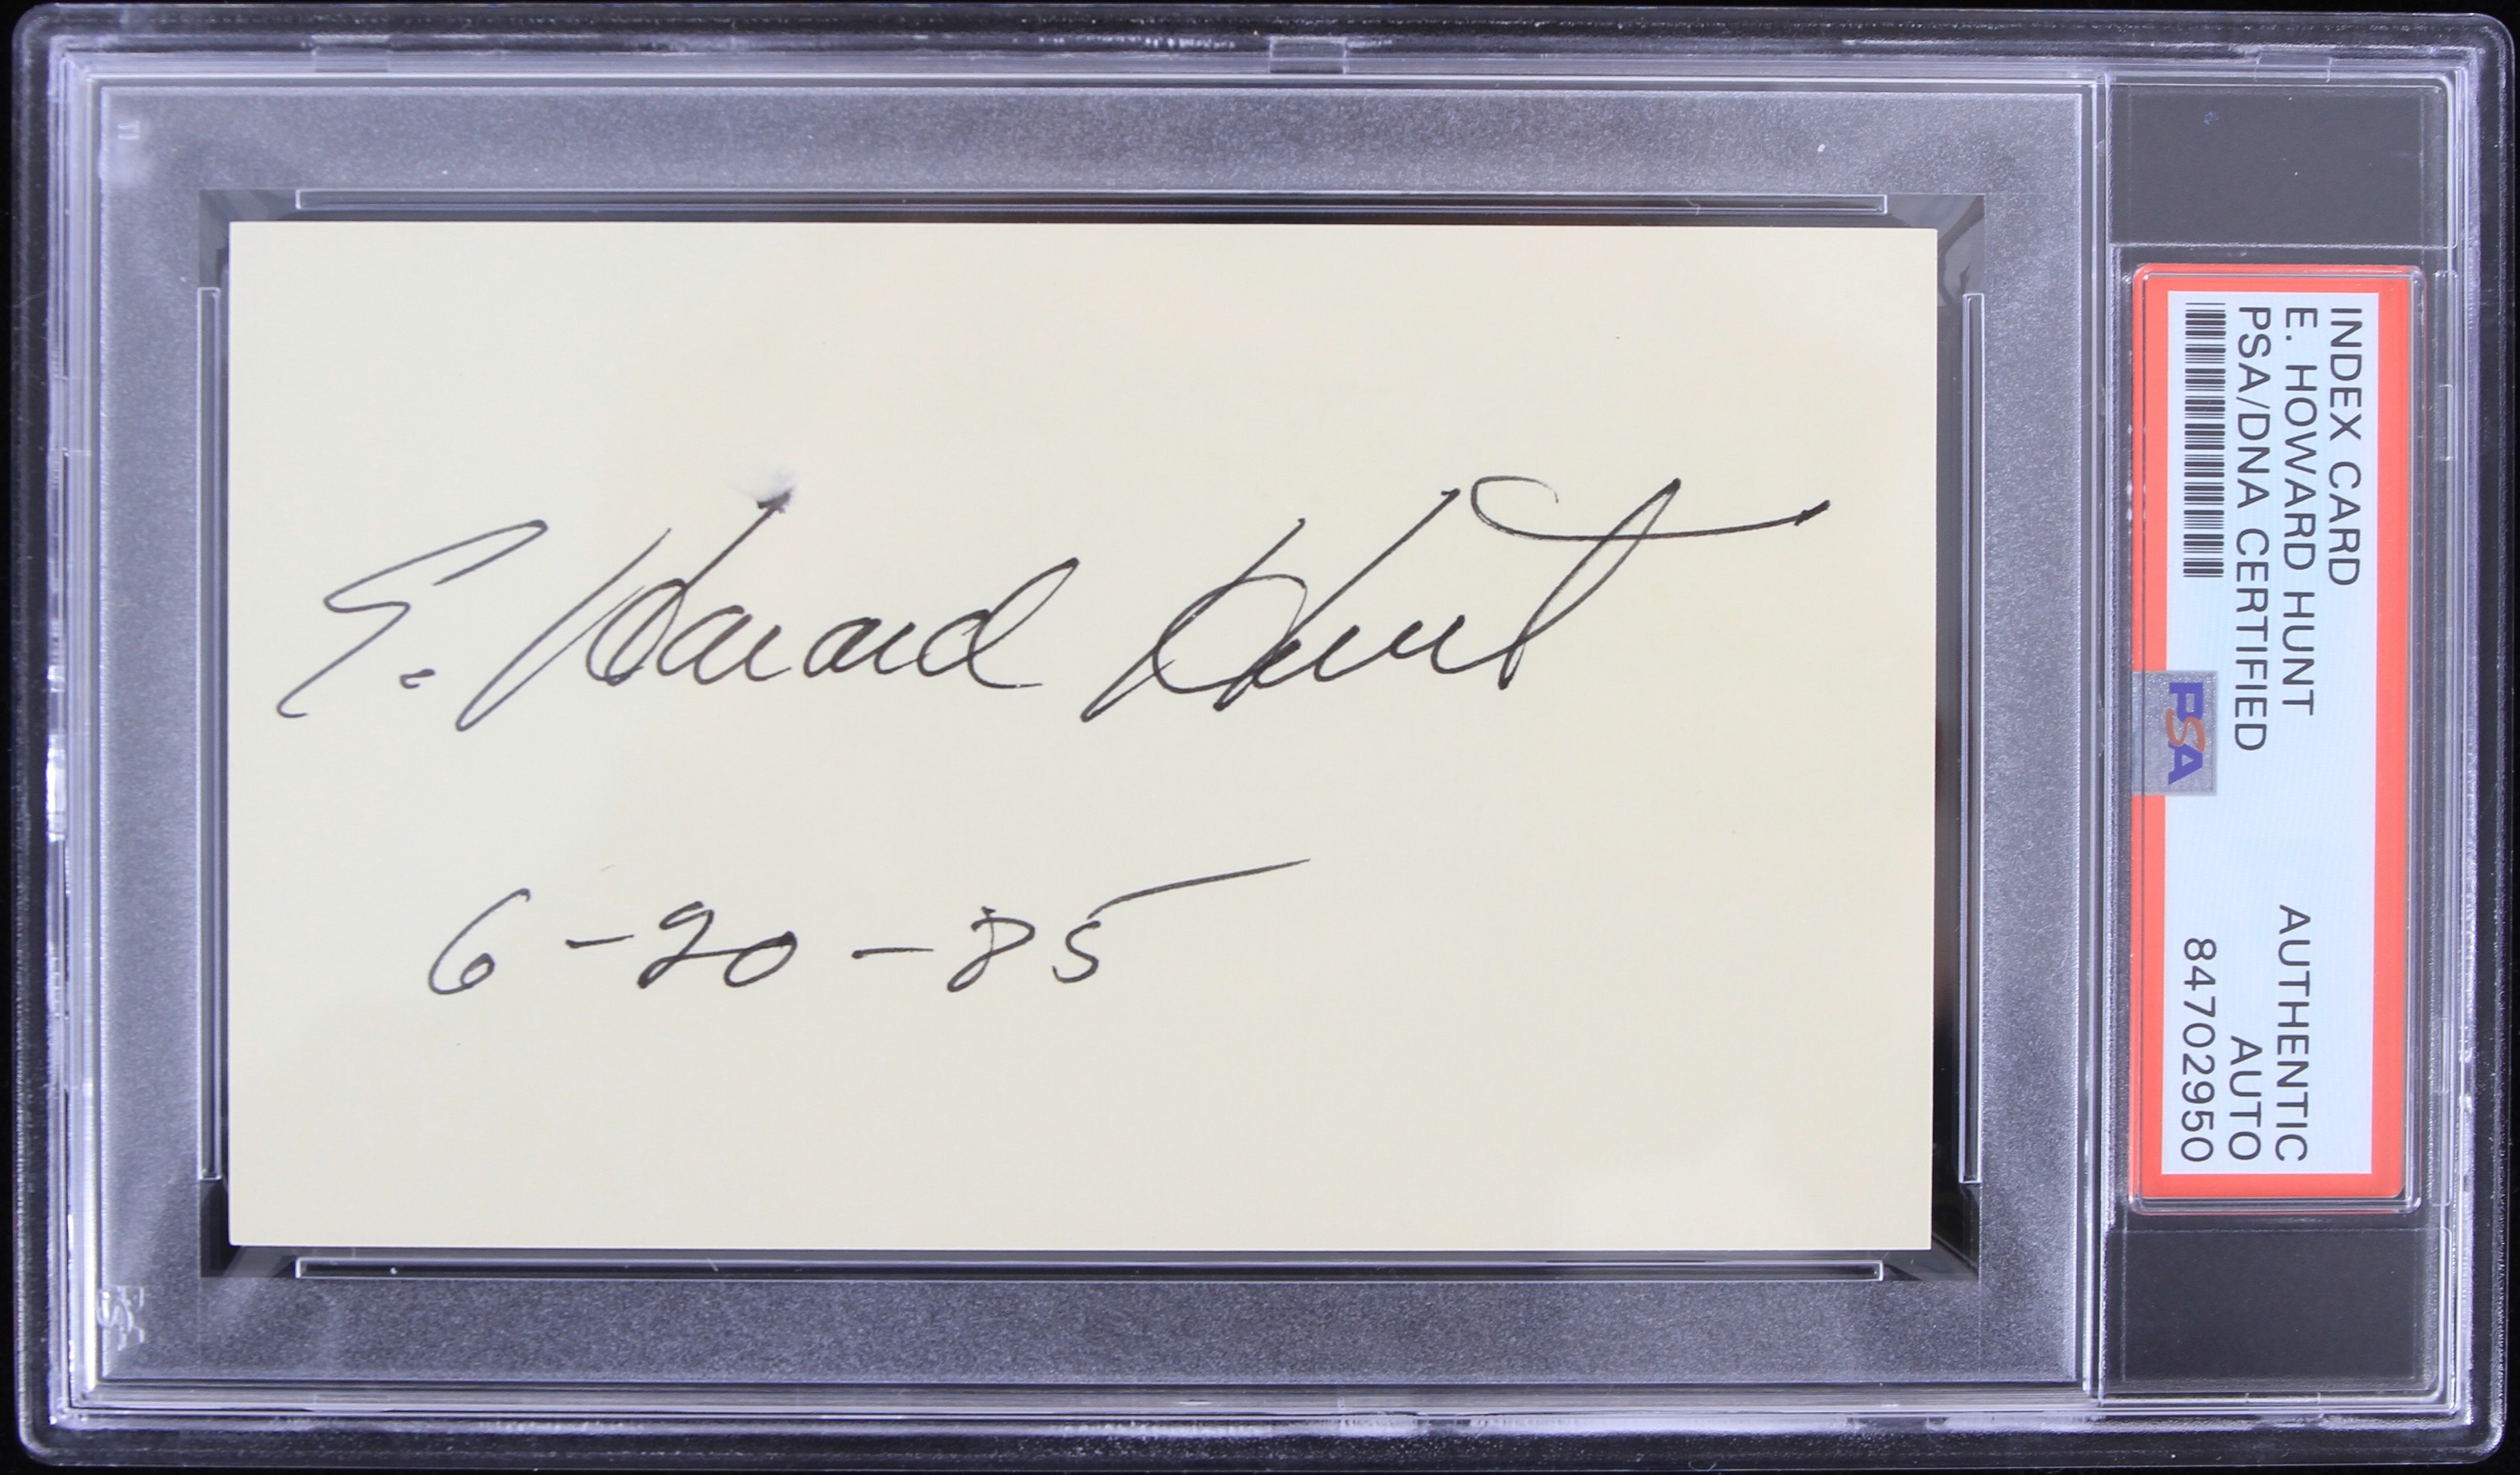 E. Howard Hunt
6-20-85
INDEX CARD
E. HOWARD HUNT
PSA/DNA CERTIFIED
AUTHENTIC
AUTO
84702950
PSA